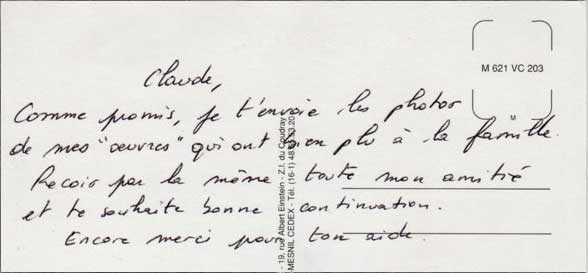 Claude,
Comme promis, je t'envoie les photos
de mes "oeuvres" qui ont bien plu à la famille.
Reçois par la même toute mon amitié
et te souhaite bonne continuation.
Encore merci pour ton aide.
M 621 VC 203
M
- 19, rue Albert Einstein - Z.I. du Coudray
-MESNIL CEDEX - Tél. (16-1) 48